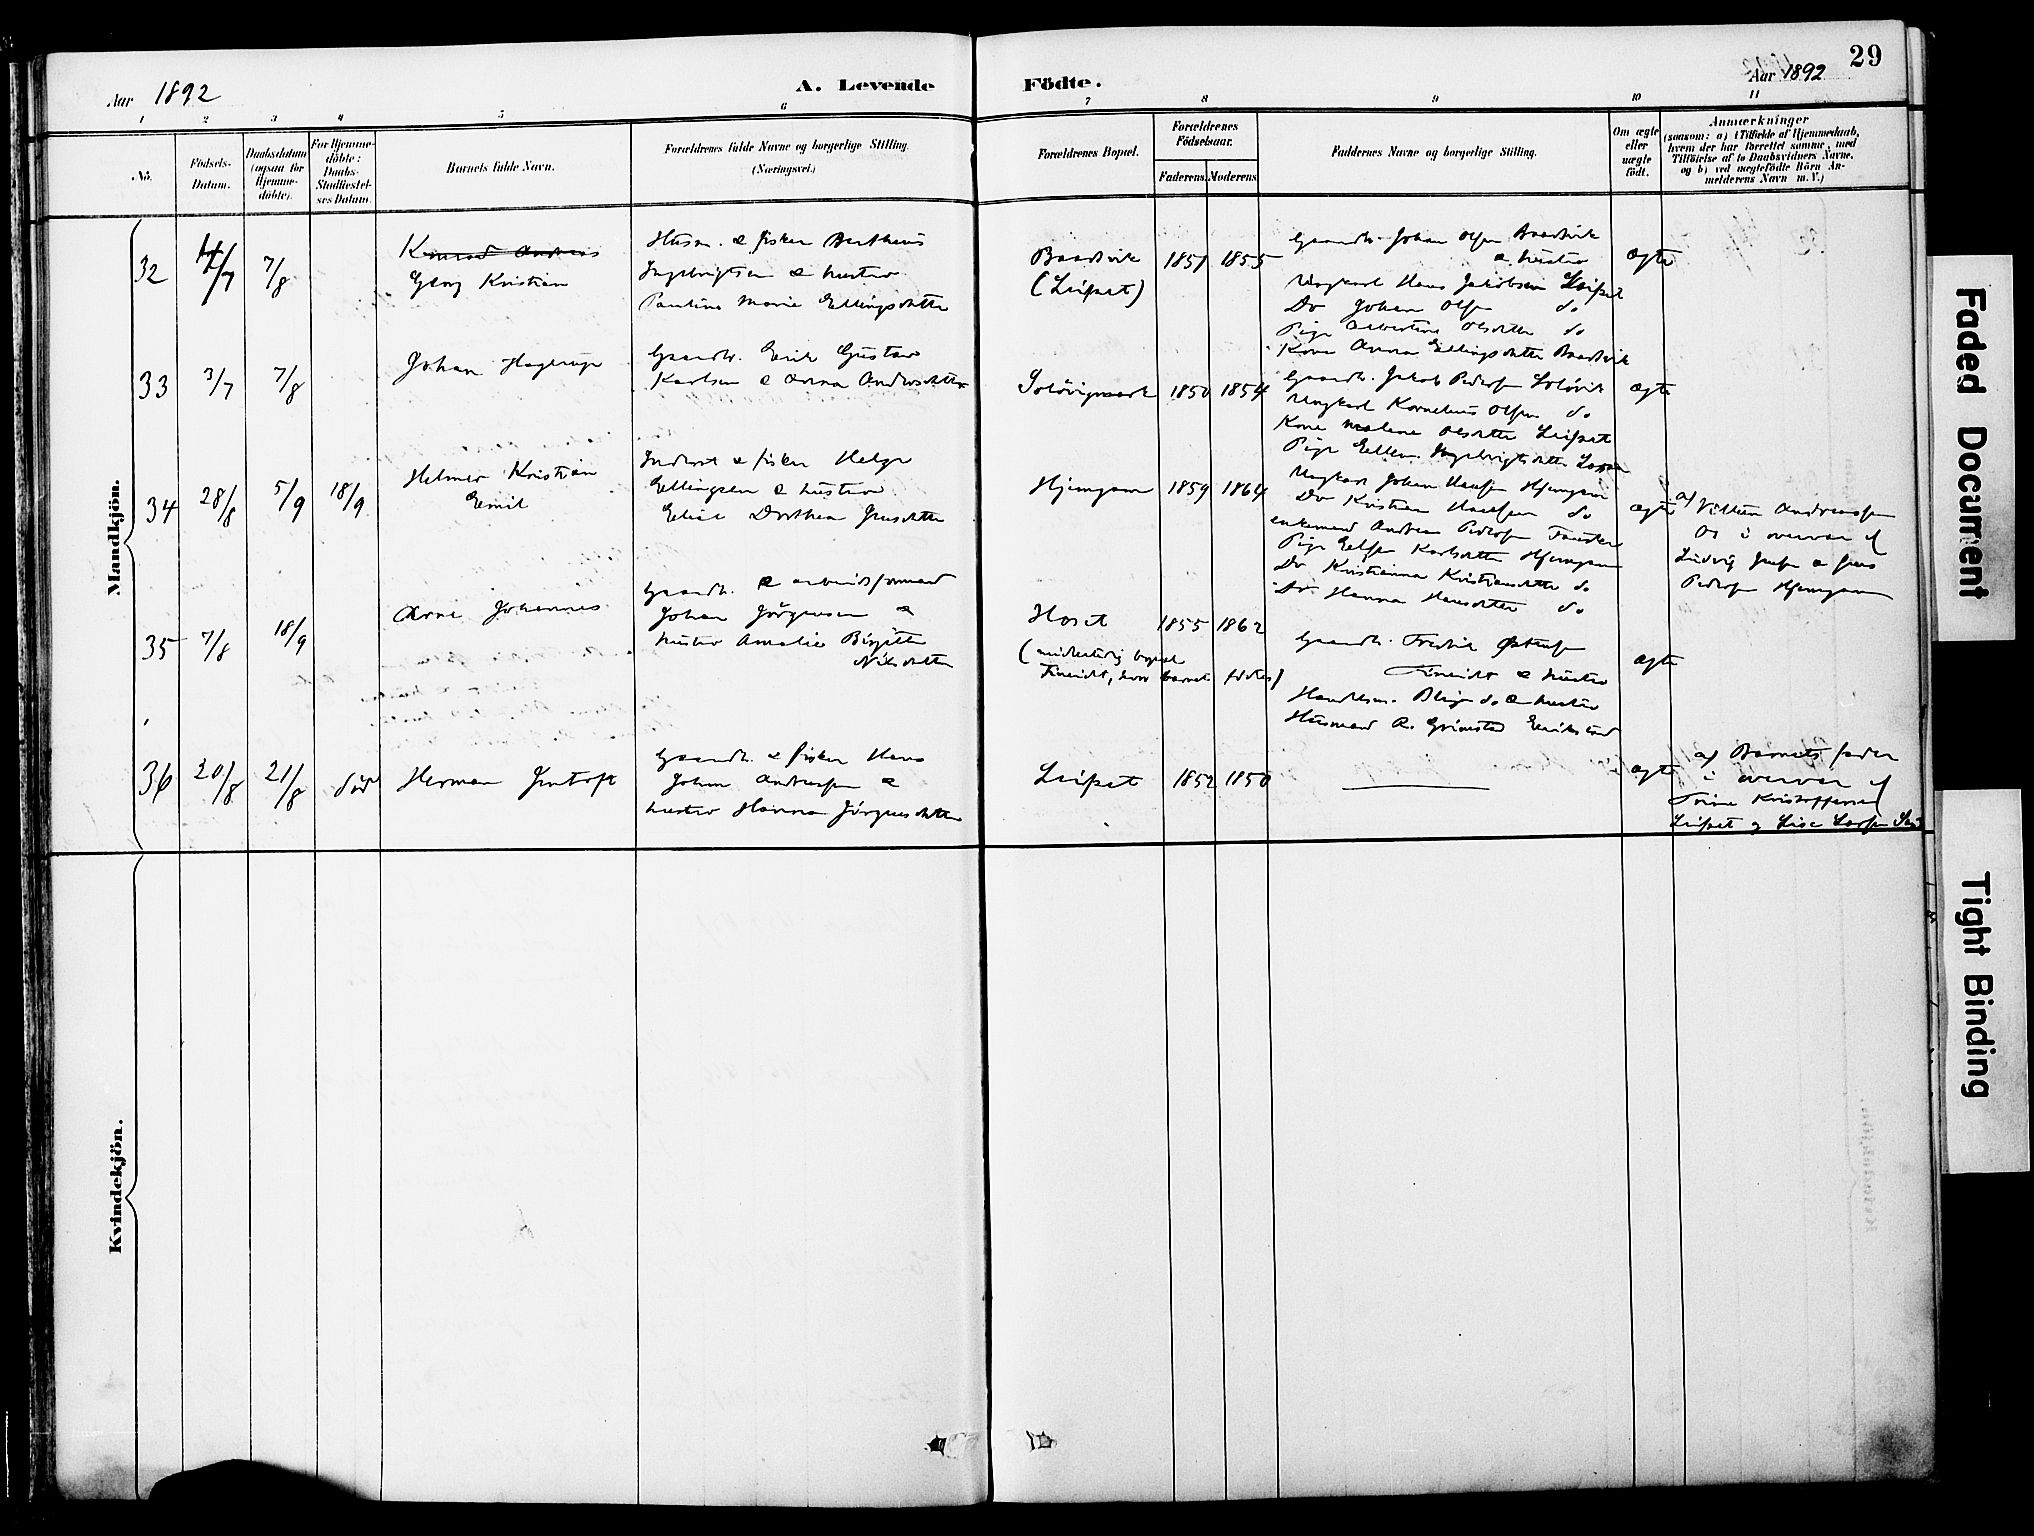 29
Aar 1892
A. Levende
Födte.
Aar 1892
1 2 3 4 5 6 7 8 9 10 11
No.
Födsels-
Datum.
Daabsdatum
(ogsaa for
Hjemme-
döbte).
For Hjemme-
döbte:
Daabs-
Stadfæstel-
ses Datum.
Barnets fulde Navn.
Forældrenes fulde Navne og borgerlige Stilling.
(Næringsvei.)
Forældrenes Bopæl.
Forældrenes
Födselsaar.
Faderens.
Moderens.
Faddernes Navne og borgerlige Stilling.
Om ægte
eller
uægte
födt.
Anmærkninger
(saasom: a) i Tilfælde af Hjemmedaab,
hvem der har forrettet samme, med
Tilföielse af to Daabsvidners Navne,
og b) ved uægtefödte Börn An-
melderens Navn m. V.)
Mandkjön.
32
/7
7/8
Konrad Andreas
Georg Kristian
Husm. & fisker Bertheus
Ingebrigtsen & hustro
Pauline Marie Ellingsdatter
Baadsvik
(Leifset)
1851
1855
Gaardb. Johan Olsen Baadsvik
& hustro
Ungkarl Hans Jakobsen Leifset
Do Johan Olsen do
Pige Albertine Olsdatter do
Kone Anna Ellingsdatter Baadsvik
ægte
33
3/7
7/8
Johan Hagerup
Gaardb. Erik Gustav
Karlsen & Anna Andersdatter
1850
1854
Gaardb. Jakob Pedersen
Ungkarl Kornelius Olsen do
Kone Malene Olsdatter Leifset
Pige Ellen Ingebrigtsdatter
ægte
34
28/8
5/9
18/9
Helmer Kristian
Emil
Inderst & fisker Helge
Ellingsen & hustro
Elise Dorthea Jensdatter
Hjemgam
1859
1864
Ungkarl Johan Hansen Hjemgam
Do Kristian Hansen do
enkemand Andreas Pedersen Fauske
Pige Karlsdatter Hjemgam
Do Kristianna Kristiansdatter do
Do Hanna Hansdatter do
ægte
af Vilhelm Andreassen
Os i overvær af
Ludvig Jensen & Jens
Pedersen Hjemgam
35
7/8
18/9
Arne Johannes
Gaardb. & arbeidsformand
Johan Jörgensen &
hustro Amalie Birgitte
Nilsdatter
Hoset
(midlertidig bopæl
Fineidet, hvor barnet födtes)
1855
1862
Gaardb. Fredrik
Fineidet & hustro
Handelsm. do & hustro
Husmand A. Grimstad
ægte
36
20/8
21/8
död
Herman Jentoft
Gaardb. & fisker Hans
Johan Andreassen &
hustro Hanna Jörgensdatter
Leifset
1852
1850
ægte
af Barnets fader
i overvær af
Trine Kristoffersen
Leifset og Lise Larsen
Kvindekjön.
Faded Document
Tight Binding